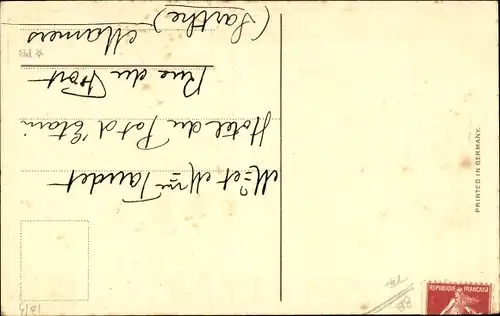 Mr et Mme Taudet
Hotel du Pot d'Etain
Rue du Fort
Mamers
(Sarthe)
PRINTED IN GERMANY.
REPUBLIQUE FRANÇAISE